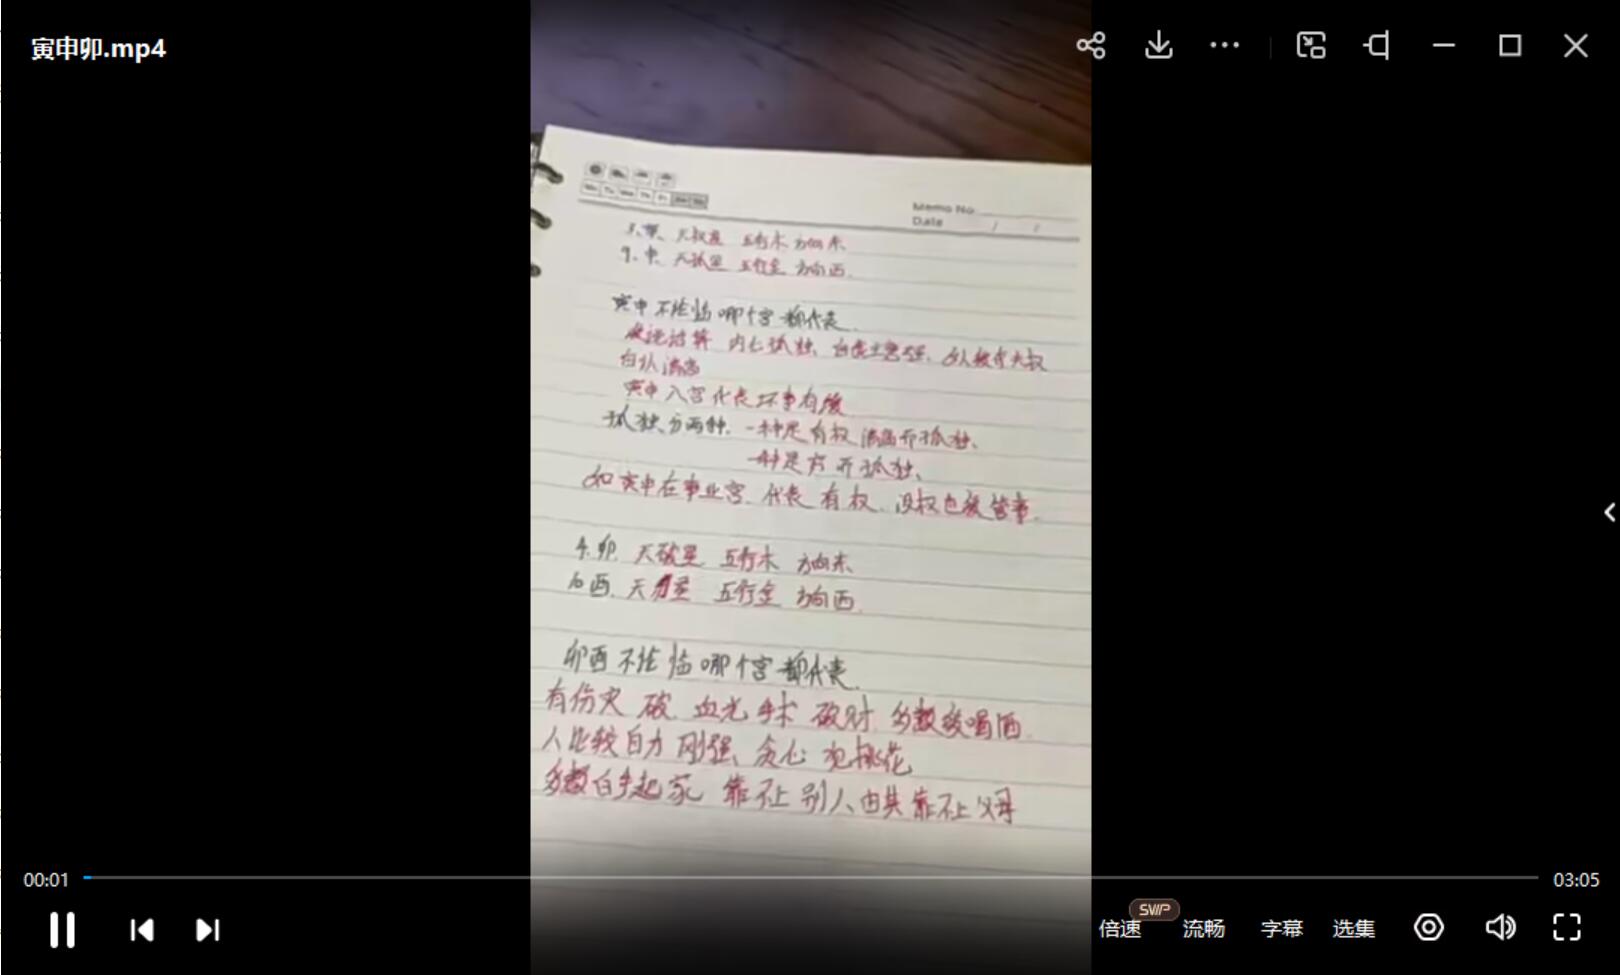 寅申卯.mp4
Memo No
Date / /
3.寅 天权星 五行木 方向东
9.申 天孤星 五行金 方向西
寅申不论临哪个宫都代表
内心孤独
寅申入宫代表坏事有缘
孤独分两种 一种是有权清高而孤独
一种是穷而孤独
如寅申在事业宫 代表有权 没权也被管事
4.卯 天破星 五行木 方向东
10酉 天刃星 五行金 方向西
卯酉不论临哪个宫都代表
有伤灾 破 血光 手术 破财 多数爱喝酒
人比较自力 刚强 贪心 犯桃花
多数白手起家 靠不上别人 由其靠不上父母
00:01
03:05
SVIP
倍速 流畅 字幕 选集